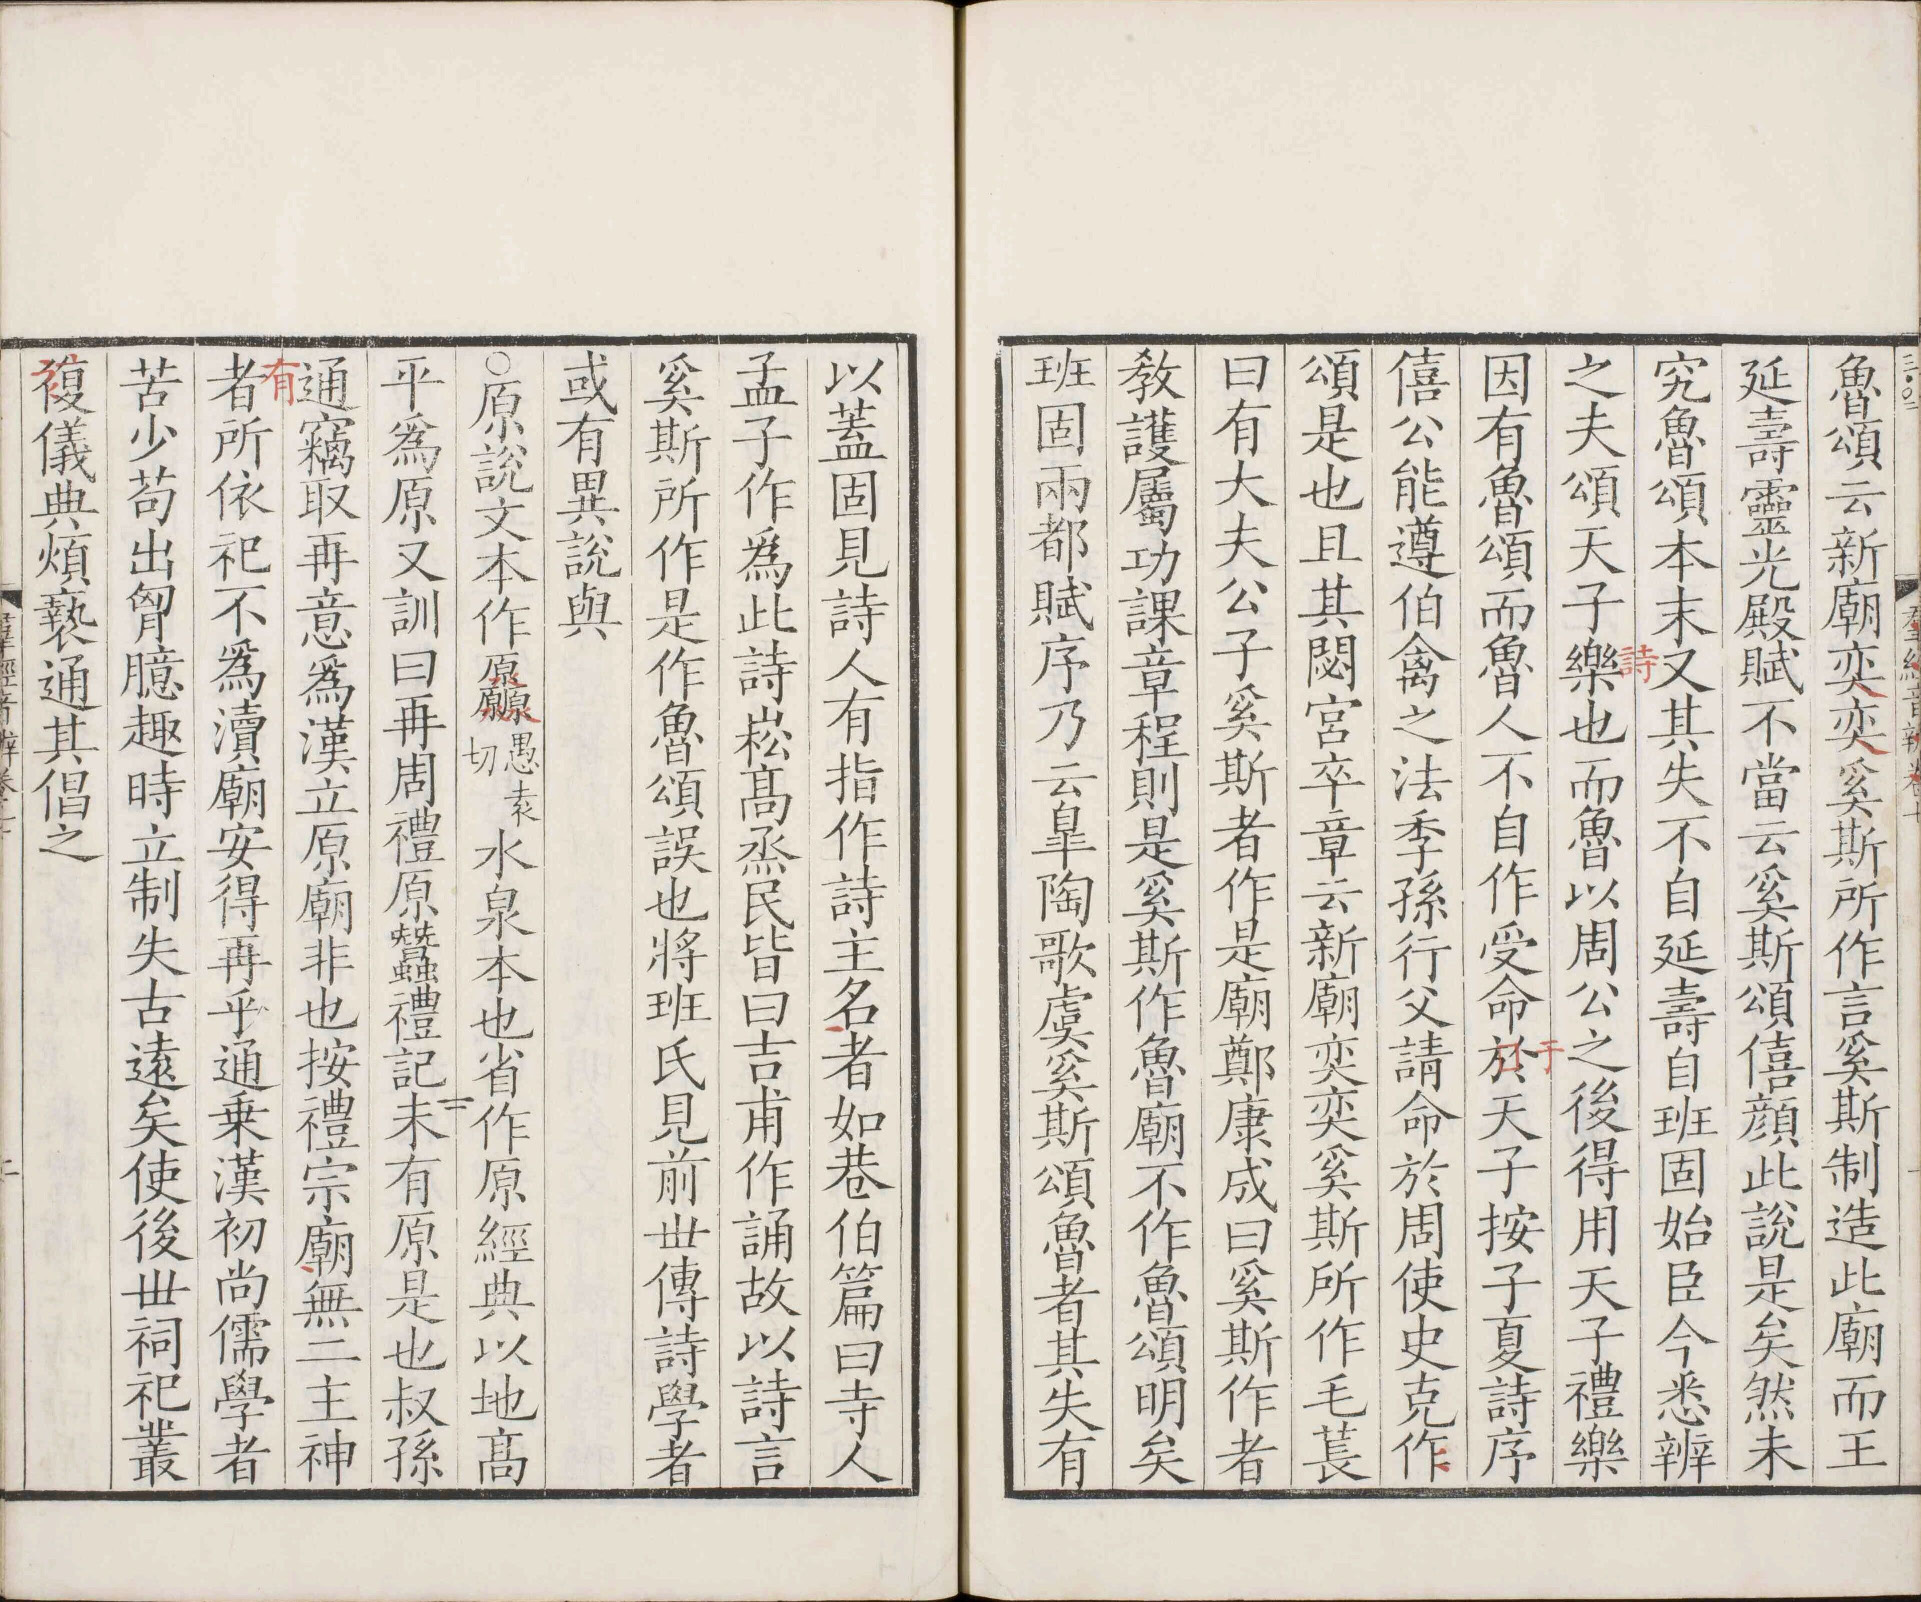 魯頌云新廟奕奕奚斯所作言奚斯制造此廟而王
延壽靈光殿賦不當云奚斯頌僖顔此說是矣然未
究魯頌本末又其失不自延壽自班固始臣今悉辨
詩
之夫頌天子樂也而魯以周公之後得用天子禮樂
因有魯頌而魯人不自作受命於天子按子夏詩序
于
僖公能遵伯禽之法季孫行父請命於周使史克作
頌是也且其閟宮卒章云新廟奕奕奚斯所作毛萇
曰有大夫公子奚斯者作是廟鄭康成曰奚斯作者
敎護屬功課章程則是奚斯作魯廟不作魯頌明矣
班固兩都賦序乃云臯陶歌虞奚斯頌魯者其失有
以蓋固見詩人有指作詩主名者如巷伯篇曰寺人
孟子作爲此詩崧髙烝民皆曰吉甫作誦故以詩言
奚斯所作是作魯頌誤也將班氏見前丗傳詩學者
或有異說與
○原說文本作原愿愚袁切水泉本也省作原經典以地髙
平爲原又訓曰再周禮原蠶禮記未有原是也叔孫
通竊取再意爲漢立原廟非也按禮宗廟無二主神
有
者所依祀不爲瀆廟安得再乎通乗漢初尚儒學者
苦少苟出胷臆趣時立制失古遠矣使後丗祠祀叢
複儀典煩褻通其倡之
羣經音辨卷七
二